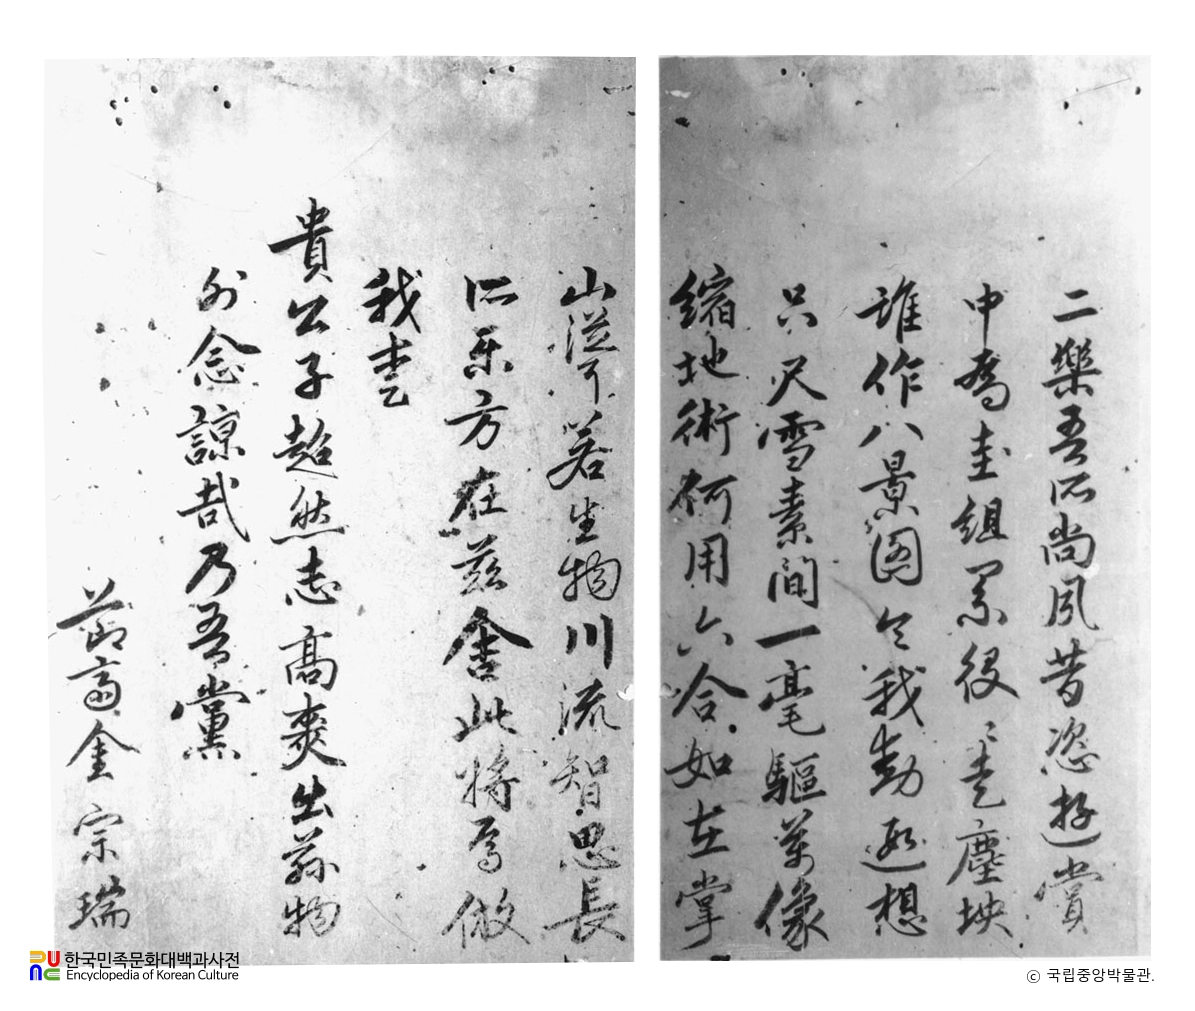 二樂吾所尚夙昔恣遊賞
中為圭組累役〻走塵坱
誰作八景圖令我動遐想
只尺雪素間一毫驅萬像
縮地術何用六合如在掌
山若生物川流智思長
所樂方在茲舍此將焉倣
我
貴公子超然志高爽出物
外念諒哉乃吾黨
節齋金宗瑞
한국민족문화대백과사전
Encyclopedia of Korean Culture
ⓒ 국립중앙박물관.